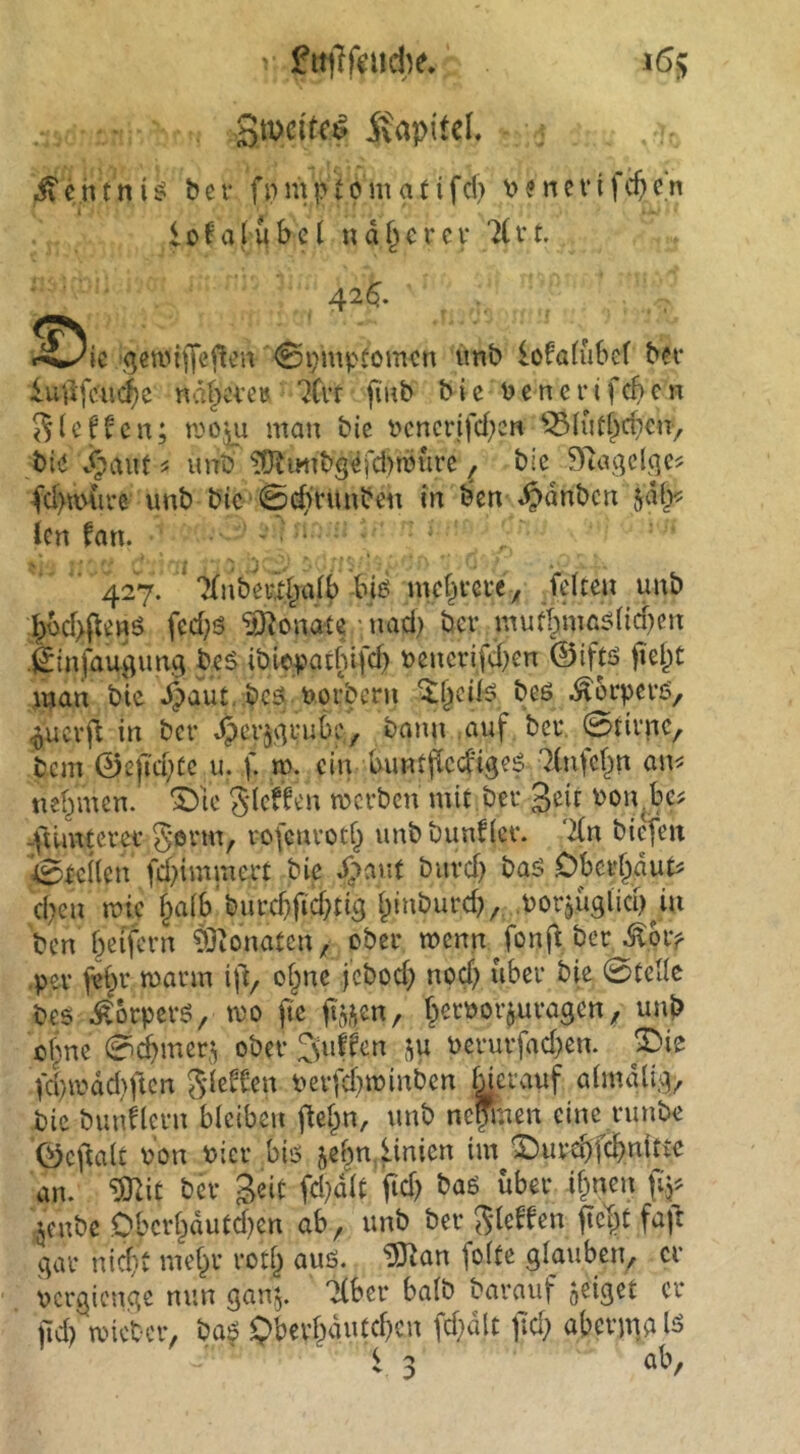 Lustseuche. 165
Zweites Kapitel.
Kentnis der symptomatisch venerischen
Lokalübel näherer Art.
426.
Die gewissesten Symptomen und Lokalübel der
Lustseuche näherer Art sind die venerischen
Flekken; wozu man die venerischen Blüthchen,
die Haut- und Mundgeschwüre, die Nagelge-
schwüre und die Schrunden in den Händen zäh-
len kan.
427. Anderthalb bis mehrere, selten und
höchstens sechs Monate nach der muthmaslichen
Einsaugung des idiopathisch venerischen Gifts sieht
man die Haut des vordern Theils des Körpers,
zuerst in der Herzgrube, dann auf der Stirne,
dem Gesichte u. s. w. ein buntfleckiges Ansehn an-
nehmen. Die Flekken werden mit der Zeit von be-
stimterer Form, rosenroth und dunkler. An diesen
Stellen schimmert die Haut durch das Oberhäut-
chen wie halb durchsichtig hindurch, vorzüglich in
den heisern Monaten, oder wenn sonst der Kör-
per sehr warm ist, ohne jedoch noch über die Stelle
des Körpers, wo sie sizzen, hervorzuragen, und
ohne Schmerz oder Jukken zu verursachen. Die
schwächsten Flekken verschwinden hierauf almälig,
die dunklern bleiben stehn, und nehmen eine runde
Gestalt von vier bis zehn Linien im Durchschnitte
an. Mit der Zeit schält sich das über ihnen siz-
zende Oberhäutchen ab, und der Flekken sieht fast
gar nicht mehr roth aus. Man solte glauben, er
vergienge nun ganz. Aber bald darauf zeiget er
sich wieder, das Oberhäutchen schält sich abermals
L 3 ab,